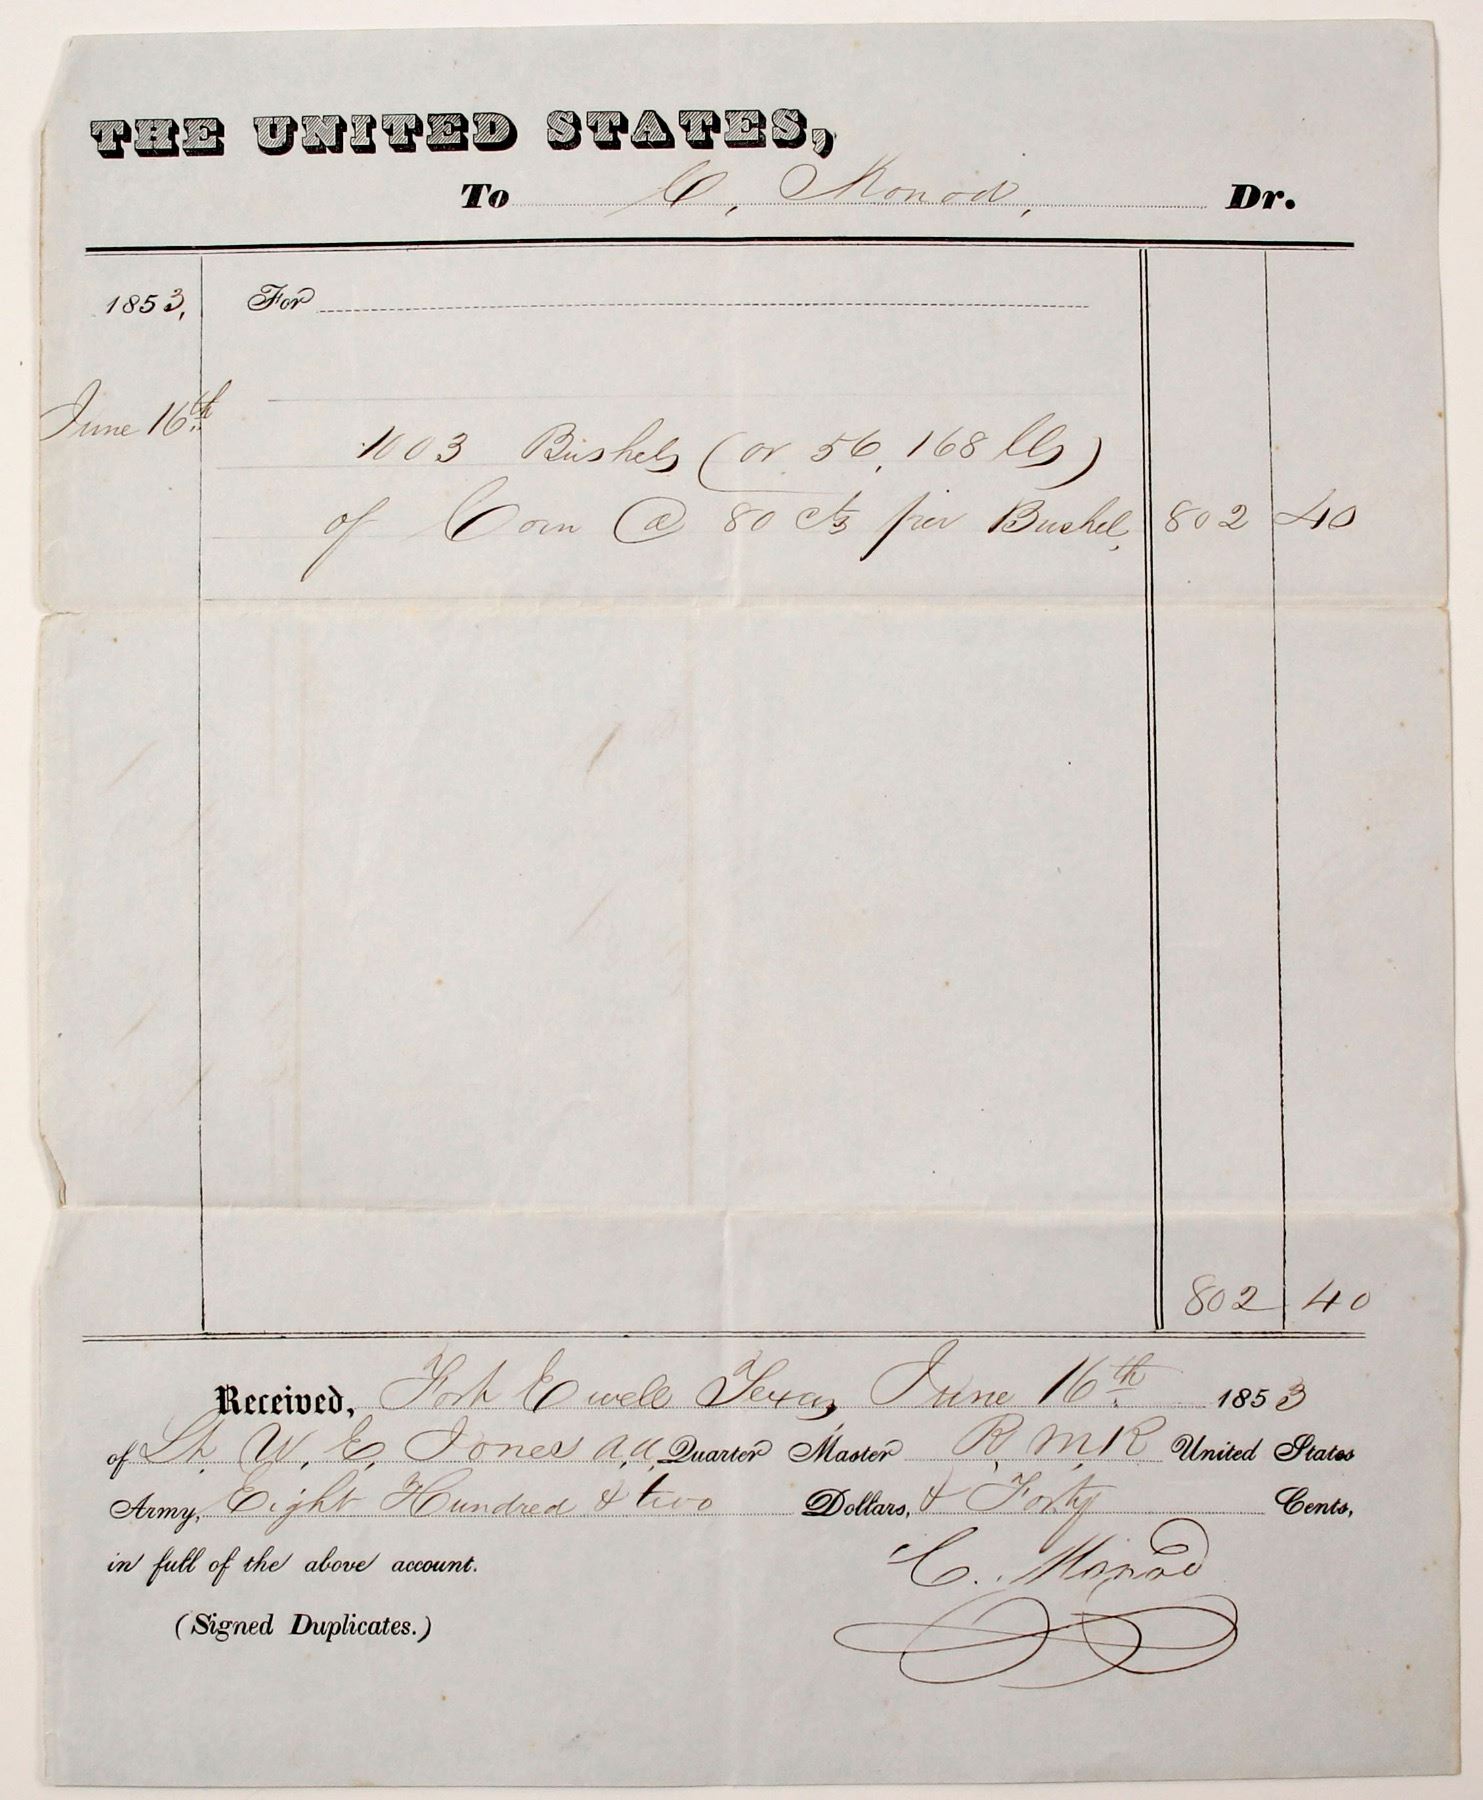 THE UNITED STATES,
To C, Monod, Dr.
1853, For
June 16th
1003 Bushels (or 56,168 lbs)
of Corn @ 80 cts per Bushel, 802 40
802 40
Received, Fort Ewell Texas, June 16th 1853
of Lt. W. E. Jones a,a, Quarter Master R, M, R United States
Army, Eight Hundred & two Dollars, & Forty Cents,
in full of the above account. C. Monod
(Signed Duplicates.)